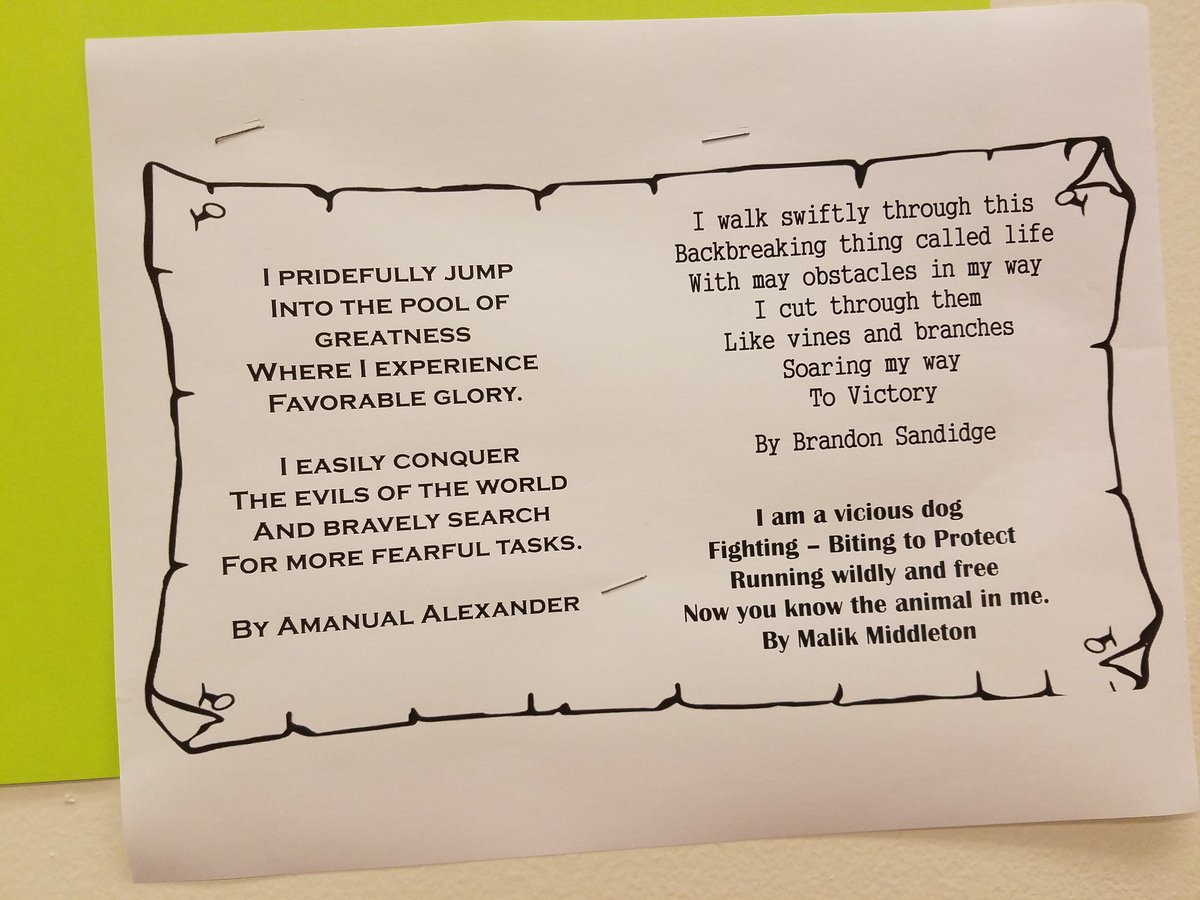 I PRIDEFULLY JUMP
INTO THE POOL OF
GREATNESS
WHERE I EXPERIENCE
FAVORABLE GLORY.
I EASILY CONQUER
THE EVILS OF THE WORLD
AND BRAVELY SEARCH
FOR MORE FEARFUL TASKS.
BY AMANUAL ALEXANDER
I walk swiftly through this
Backbreaking thing called life
With may obstacles in my way
I cut through them
Like vines and branches
Soaring my way
To Victory
By Brandon Sandidge
I am a vicious dog
Fighting – Biting to Protect
Running wildly and free
Now you know the animal in me.
By Malik Middleton